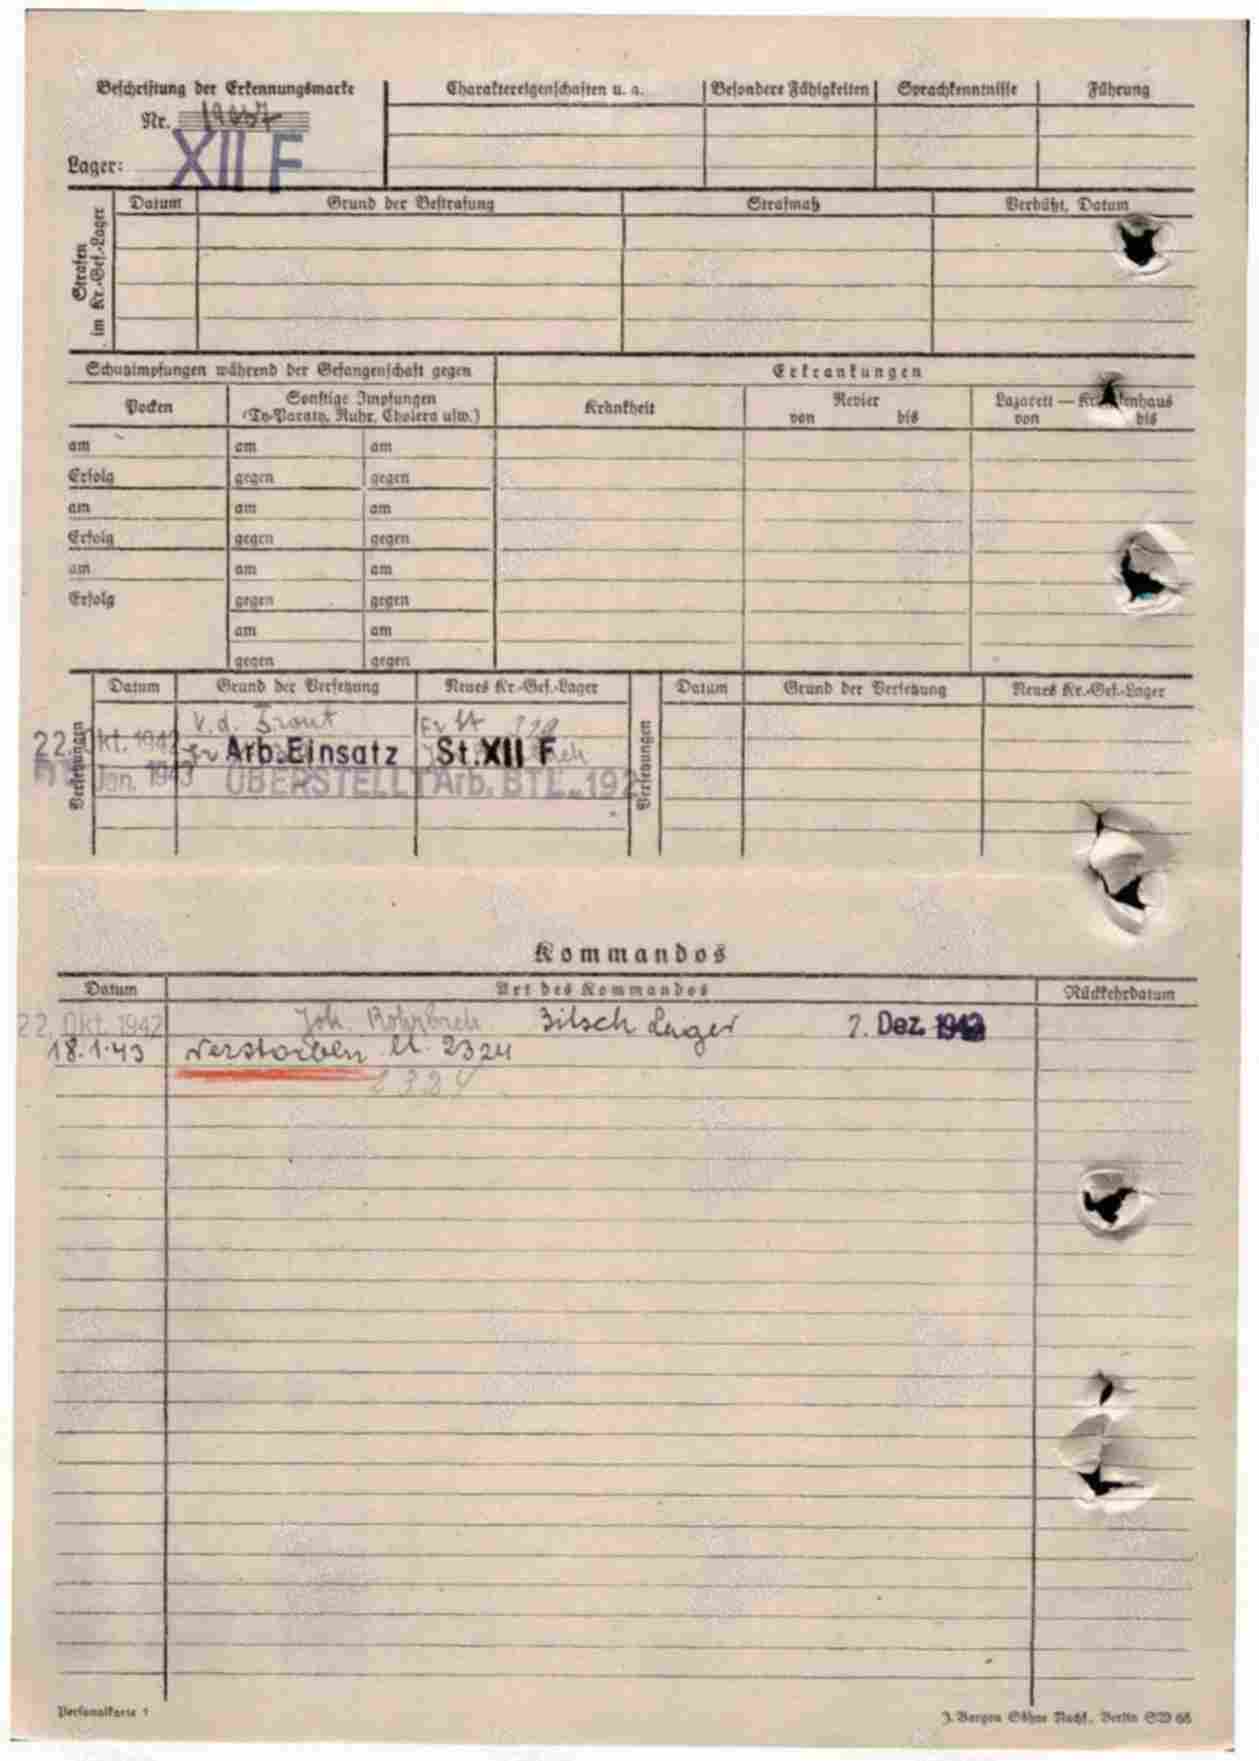 Beschriftung der Erkennungsmarke
Charaktereigenschaften u. a.
Besondere Fähigkeiten
Sprachkenntnisse
Führung
Nr.
Lager: XII F
Strafen im Kr.-Gef.-Lager
Datum
Grund der Bestrafung
Strafmaß
Verbüßt, Datum
Schutzimpfungen während der Gefangenschaft gegen
Erkrankungen
Pocken
Sonstige Impfungen
(Ty-Paraty, Ruhr, Cholera usw.)
Krankheit
Revier
von bis
Lazarett — Krankenhaus
von bis
am am am
Erfolg gegen gegen
am am am
Erfolg gegen gegen
am am am
Erfolg gegen gegen
am am
gegen gegen
Versetzungen
Datum Grund der Versetzung Neues Kr.-Gef.-Lager
Versetzungen
Datum Grund der Versetzung Neues Kr.-Gef.-Lager
v. d. Front
22. Okt. 1942 Arb. Einsatz St. XII F
Jan. 1943 ÜBERSTELLT Arb. BTL. 192
Kommandos
Datum Art des Kommandos Rückkehrdatum
22. Okt. 1942 Joh. Rohrbach Bitsch Lager 2. Dez. 1942
18.1.43 verstorben M. 2324
Personalkarte 1
J. Bargou Söhne Nachf., Berlin SW 68